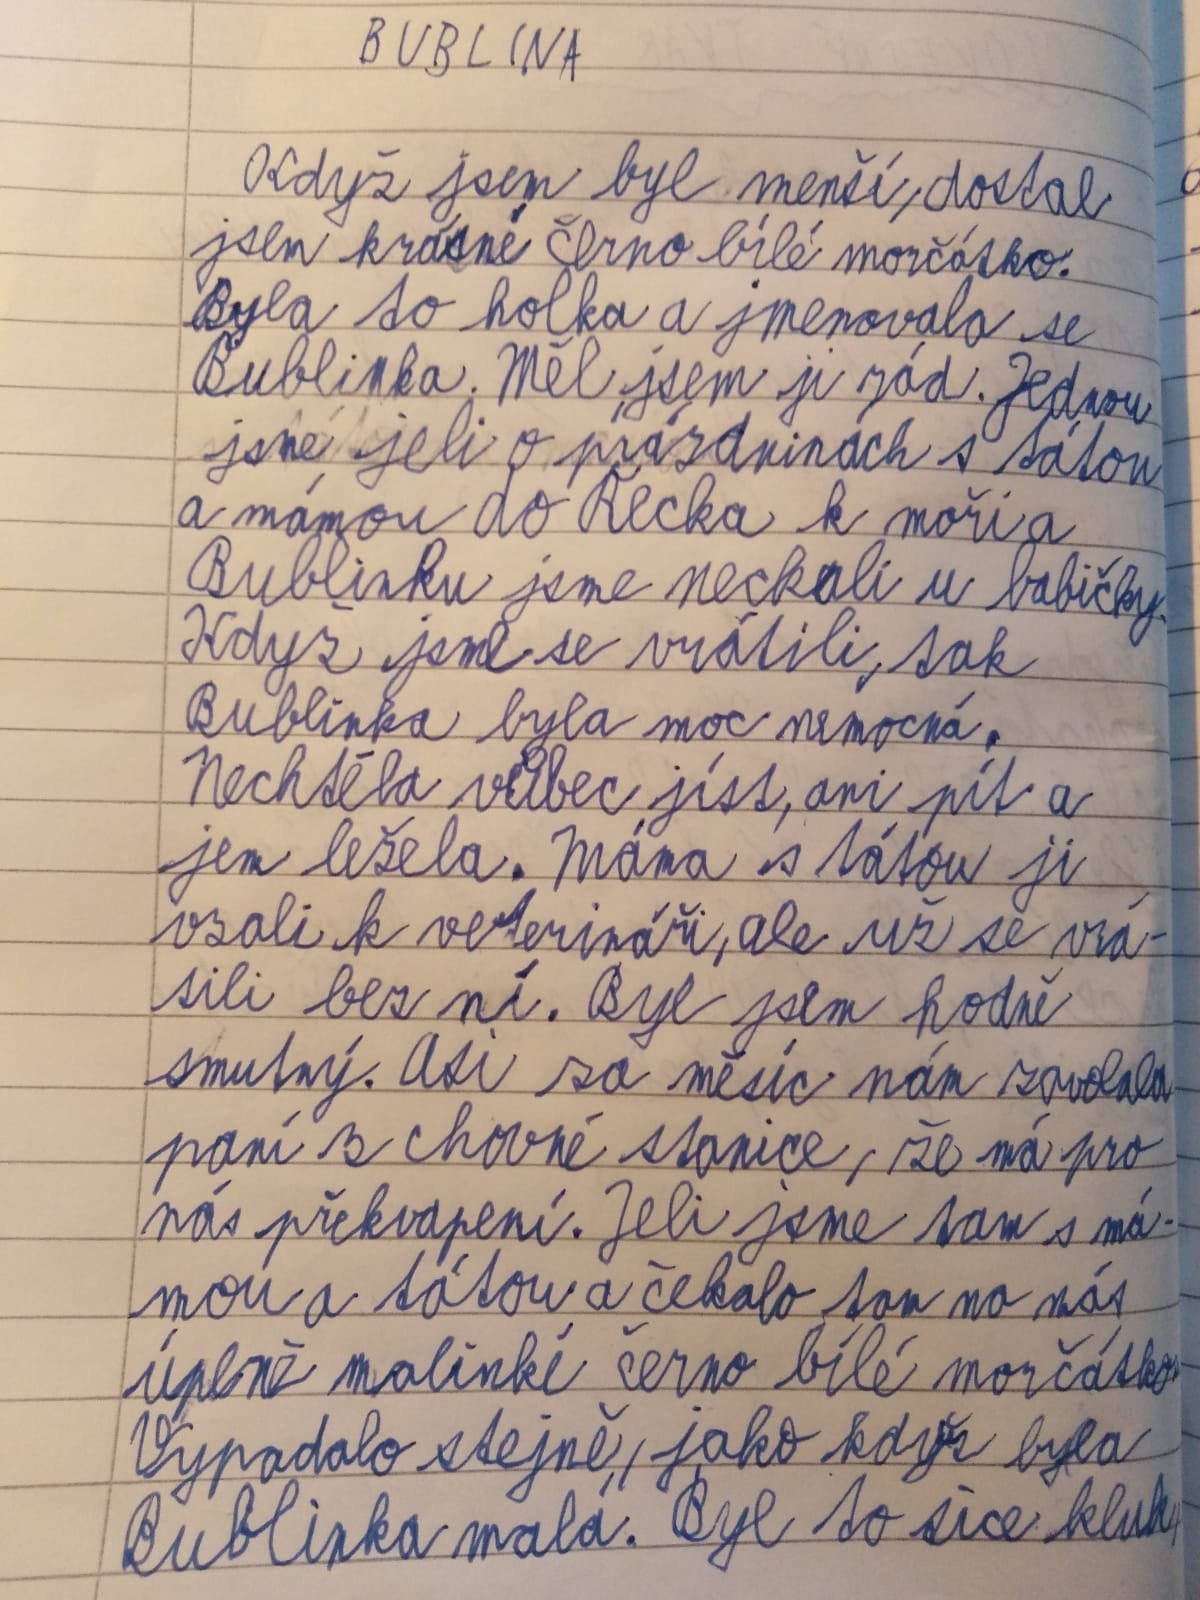 BUBLINA
Když jsem byl menší, dostal
jsem krásné černo bílé morčátko.
Byla to holka a jmenovala se
Bublinka. Měl jsem ji rád. Jednou
jsme jeli o prázdninách s tátou
a mámou do Řecka k moři a
Bublinku jsme neckali u babičky.
Když jsme se vrátili, tak
Bublinka byla moc nemocná.
Nechtěla vůbec jíst, ani pít a
jen ležela. Máma s tátou ji
vzali k veterináři, ale už se vrá-
tili bez ní. Byl jsem hodně
smutný. Asi za měsíc nám zavolala
paní z chovné stanice, že má pro
nás překvapení. Jeli jsme tam s má-
mou a tátou a čekalo tam na nás
úplně malinké černo bílé morčátko.
Vypadalo stejně, jako když byla
Bublinka malá. Byl to sice kluk,